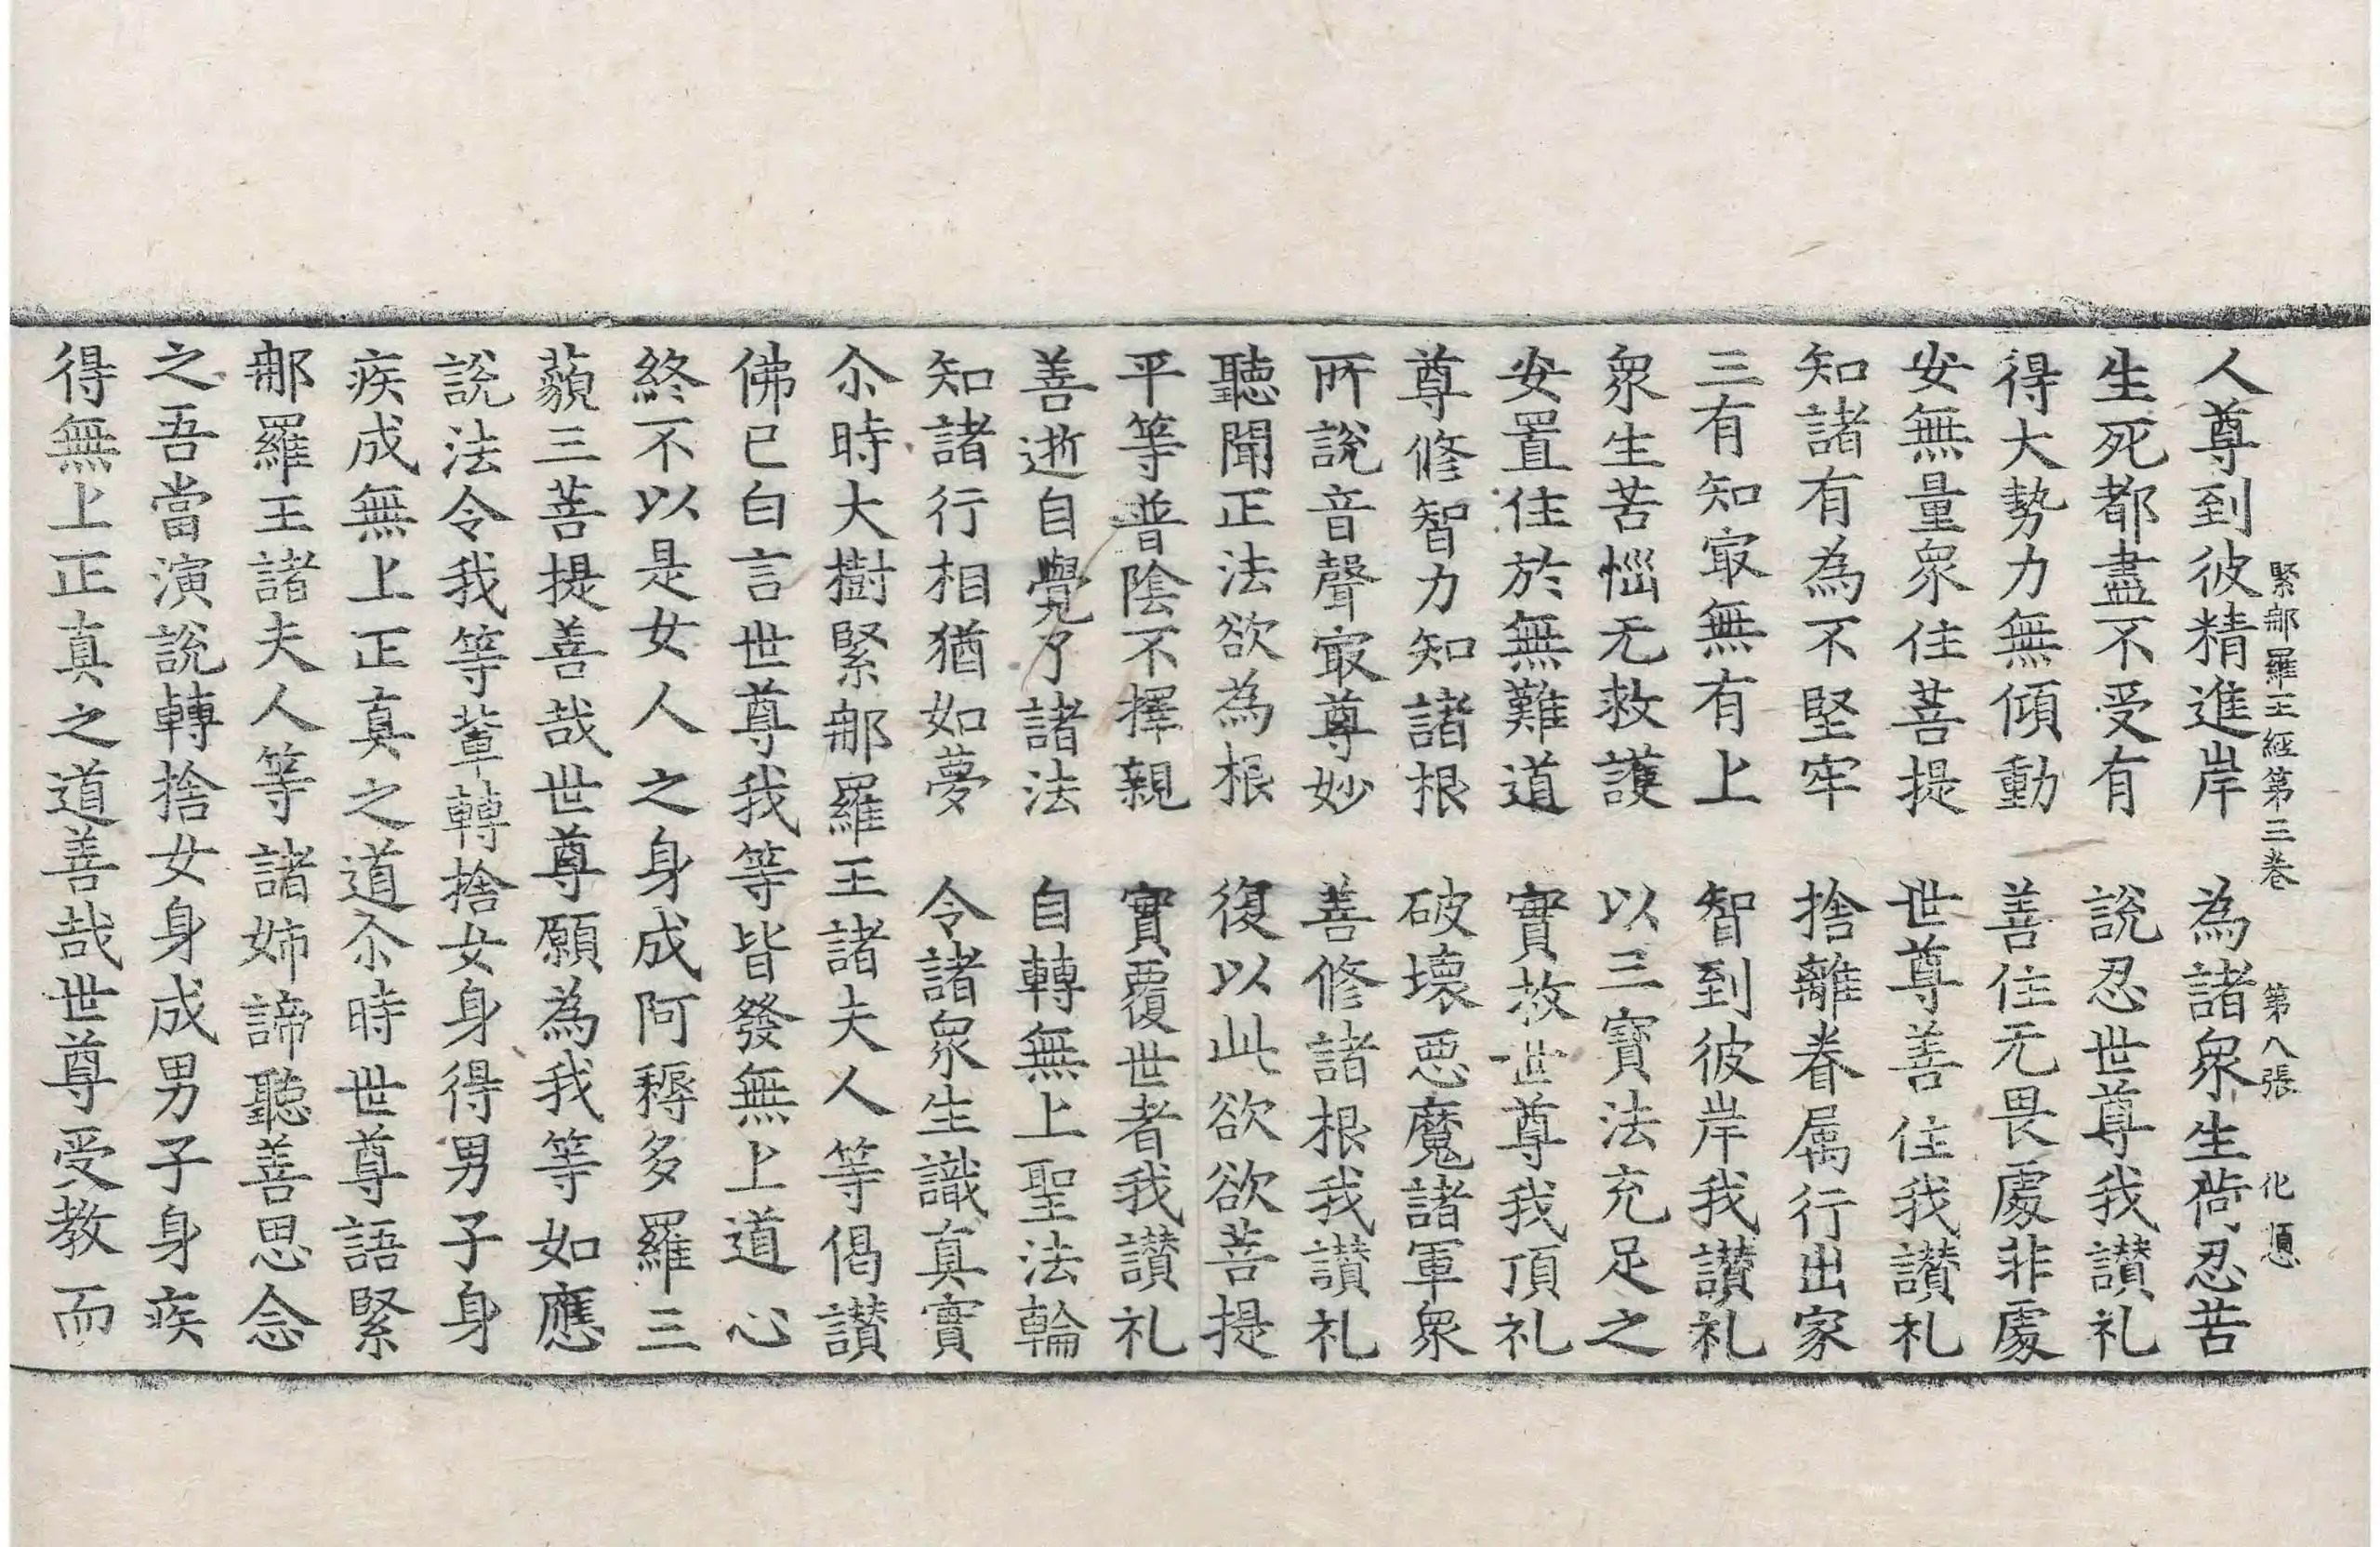 緊那羅王經第三卷　第八張　化　順
人尊到彼精進岸　為諸衆生荷忍苦
生死都盡不受有　說忍世尊我讃礼
得大勢力無傾動　善住无畏處非處
安無量衆住菩提　世尊善住我讃礼
知諸有為不堅牢　捨離眷属行出家
三有知㝡無有上　智到彼岸我讃礼
衆生苦惱无救護　以三寶法充足之
安置住於無難道　實救世尊我頂礼
尊修智力知諸根　破壞惡魔諸軍衆
所說音聲㝡尊妙　善修諸根我讃礼
聽聞正法欲為根　復以此欲欲菩提
平等普陰不擇親　實覆世者我讃礼
善逝自覺了諸法　自轉無上聖法輪
知諸行相猶如夢　令諸衆生識真實
尒時大樹緊那羅王諸夫人等偈讃
佛已白言世尊我等皆發無上道心
終不以是女人之身成阿耨多羅三
藐三菩提善哉世尊願為我等如應
說法令我等輩轉捨女身得男子身
疾成無上正真之道尒時世尊語緊
那羅王諸夫人等諸姊諦聽善思念
之吾當演說轉捨女身成男子身疾
得無上正真之道善哉世尊受教而